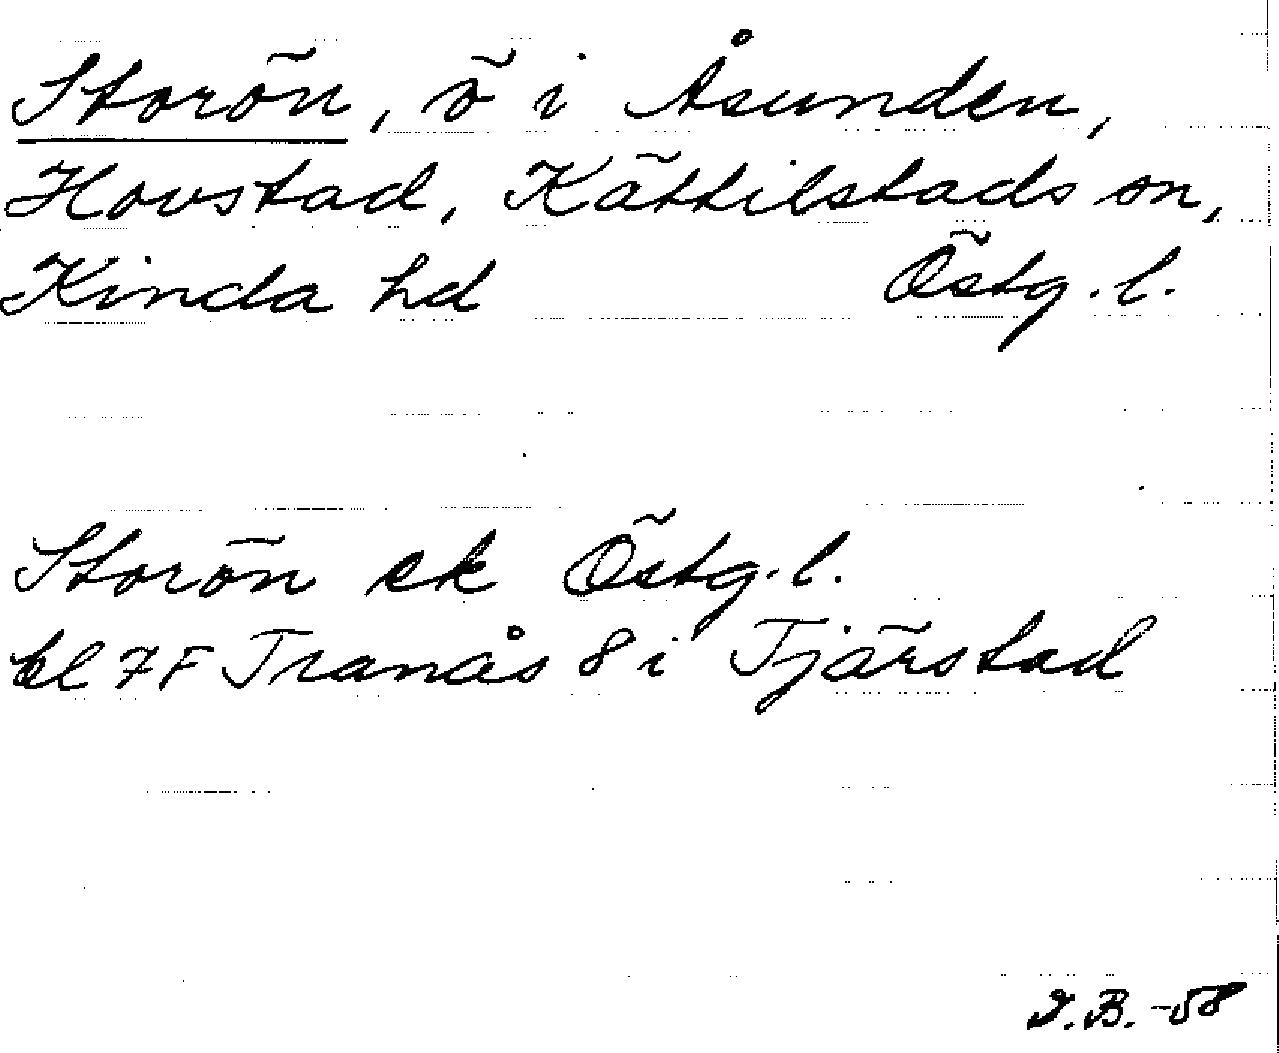 Storön, ö i Åsunden,
Hovstad, Kättilstads sn,
Kinda hd Östg. l.
Storön ek Östg. l.
bl 7F Tranås 8 i Tjärstad
I.B. -58